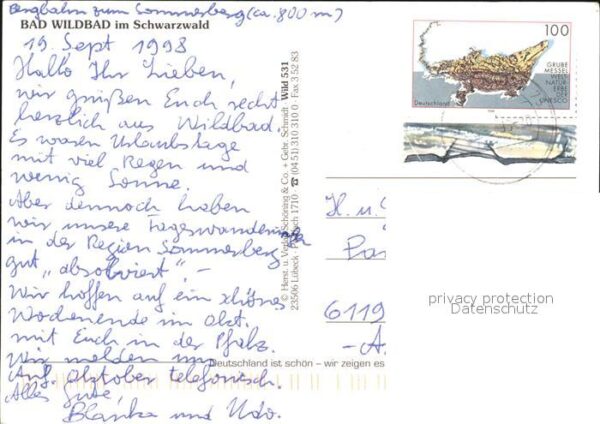 Bergbahn zum Sommerberg (ca. 800 m)
BAD WILDBAD im Schwarzwald
19. Sept 1998
Hallo Ihr Lieben,
wir grüßen Euch recht
herzlich aus Wildbad.
Es waren Urlaubstage
mit viel Regen und
wenig Sonne.
Aber dennoch haben
wir unsere Tageswanderungen
in der Region Sommerberg
gut "absolviert". -
Wir hoffen auf ein schönes
Wochenende im Okt.
mit Euch in der Pfalz.
Wir melden uns
Anf. Oktober telefonisch.
Alles Gute,
Blanka und Udo.
© Herst. u. Verlag Schöning & Co. + Gebr. Schmidt
23506 Lübeck · Postfach 1710 · ☎ (04 51) 310 310 0 · Fax 3 52 83
Wild 531
Deutschland ist schön – wir zeigen es
100
GRUBE
MESSEL
WELT-
NATUR-
ERBE
DER
UNESCO
Deutschland
H. u.
6119
-A.
privacy protection
Datenschutz